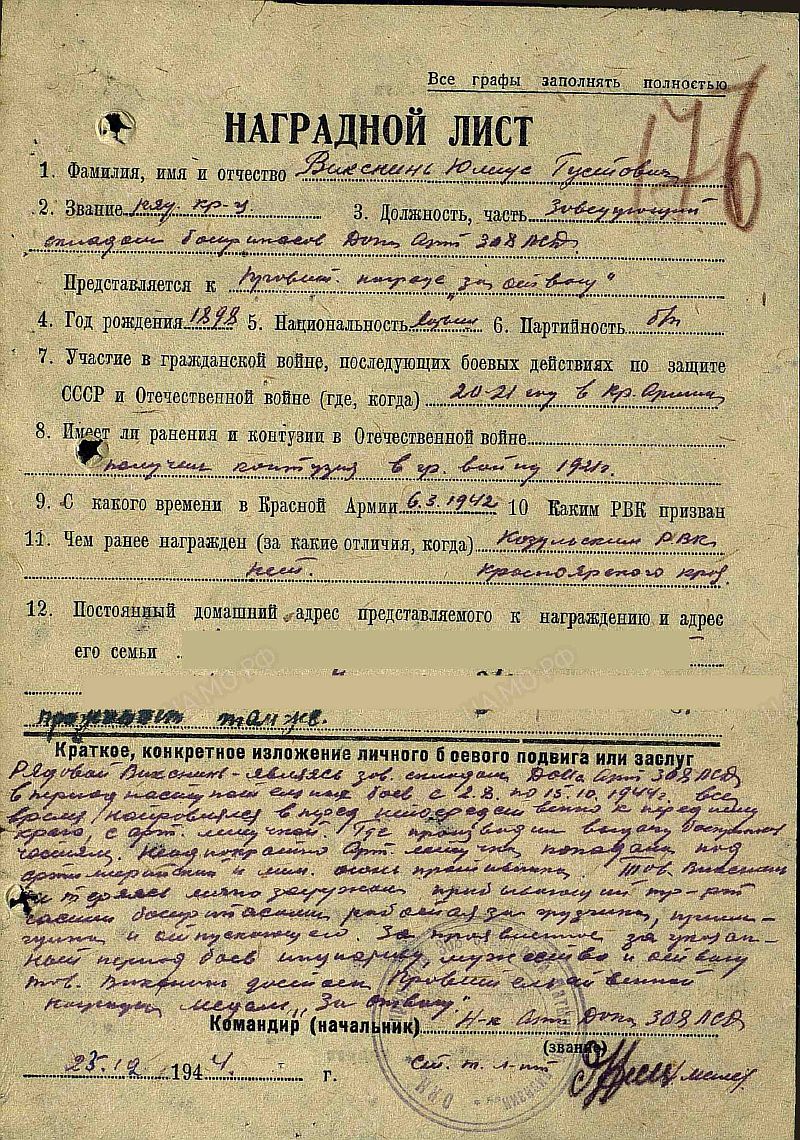 Все графы заполнять полностью
176
НАГРАДНОЙ ЛИСТ
1. Фамилия, имя и отчество Викснинь Юлиус Густович
2. Звание кр-ц 3. Должность, часть Заведующий
складом боеприпасов Допа Арт 308 ЛСД
Представляется к Правит. награде "за отвагу"
4. Год рождения 1898 5. Национальность Латыш 6. Партийность б/п
7. Участие в гражданской войне, последующих боевых действиях по защите
СССР и Отечественной войне (где, когда) 20-21 году в Кр. Армии
8. Имеет ли ранения и контузии в Отечественной войне
получил контузия в гр. войну 1921г.
9. С какого времени в Красной Армии 6.3.1942 10 Каким РВК призван
11. Чем ранее награжден (за какие отличия, когда) Козульским РВК
нет. Красноярского края
12. Постоянный домашний адрес представляемого к награждению и адрес
его семьи
проживает там же.
Краткое, конкретное изложение личного боевого подвига или заслуг
Рядовой Викснинь - являясь зав. складом Арт 308 ЛСД
в период наступательных боев с 2.8. по 15.10.1944г. все
время направлялся вперед непосредственно к переднему
краю, с арт. летучкой. Где производил выдачу боеприпасов
частям. Неоднократно Арт летучка попадала под
артиллерийский и мин. огонь противника. Тов. Викснинь
не теряясь метко загружал
части боеприпасами работая за грузчика,
и отпускающего. За проявленное за указан-
ный период боев инициативу, мужество и отвагу
тов. Викснинь достоин Правительственной
награды медали "За отвагу".
Командир (начальник) Н-к Арт Допа 308 ЛСД
(звание)
1944 г. ст. т. л-т